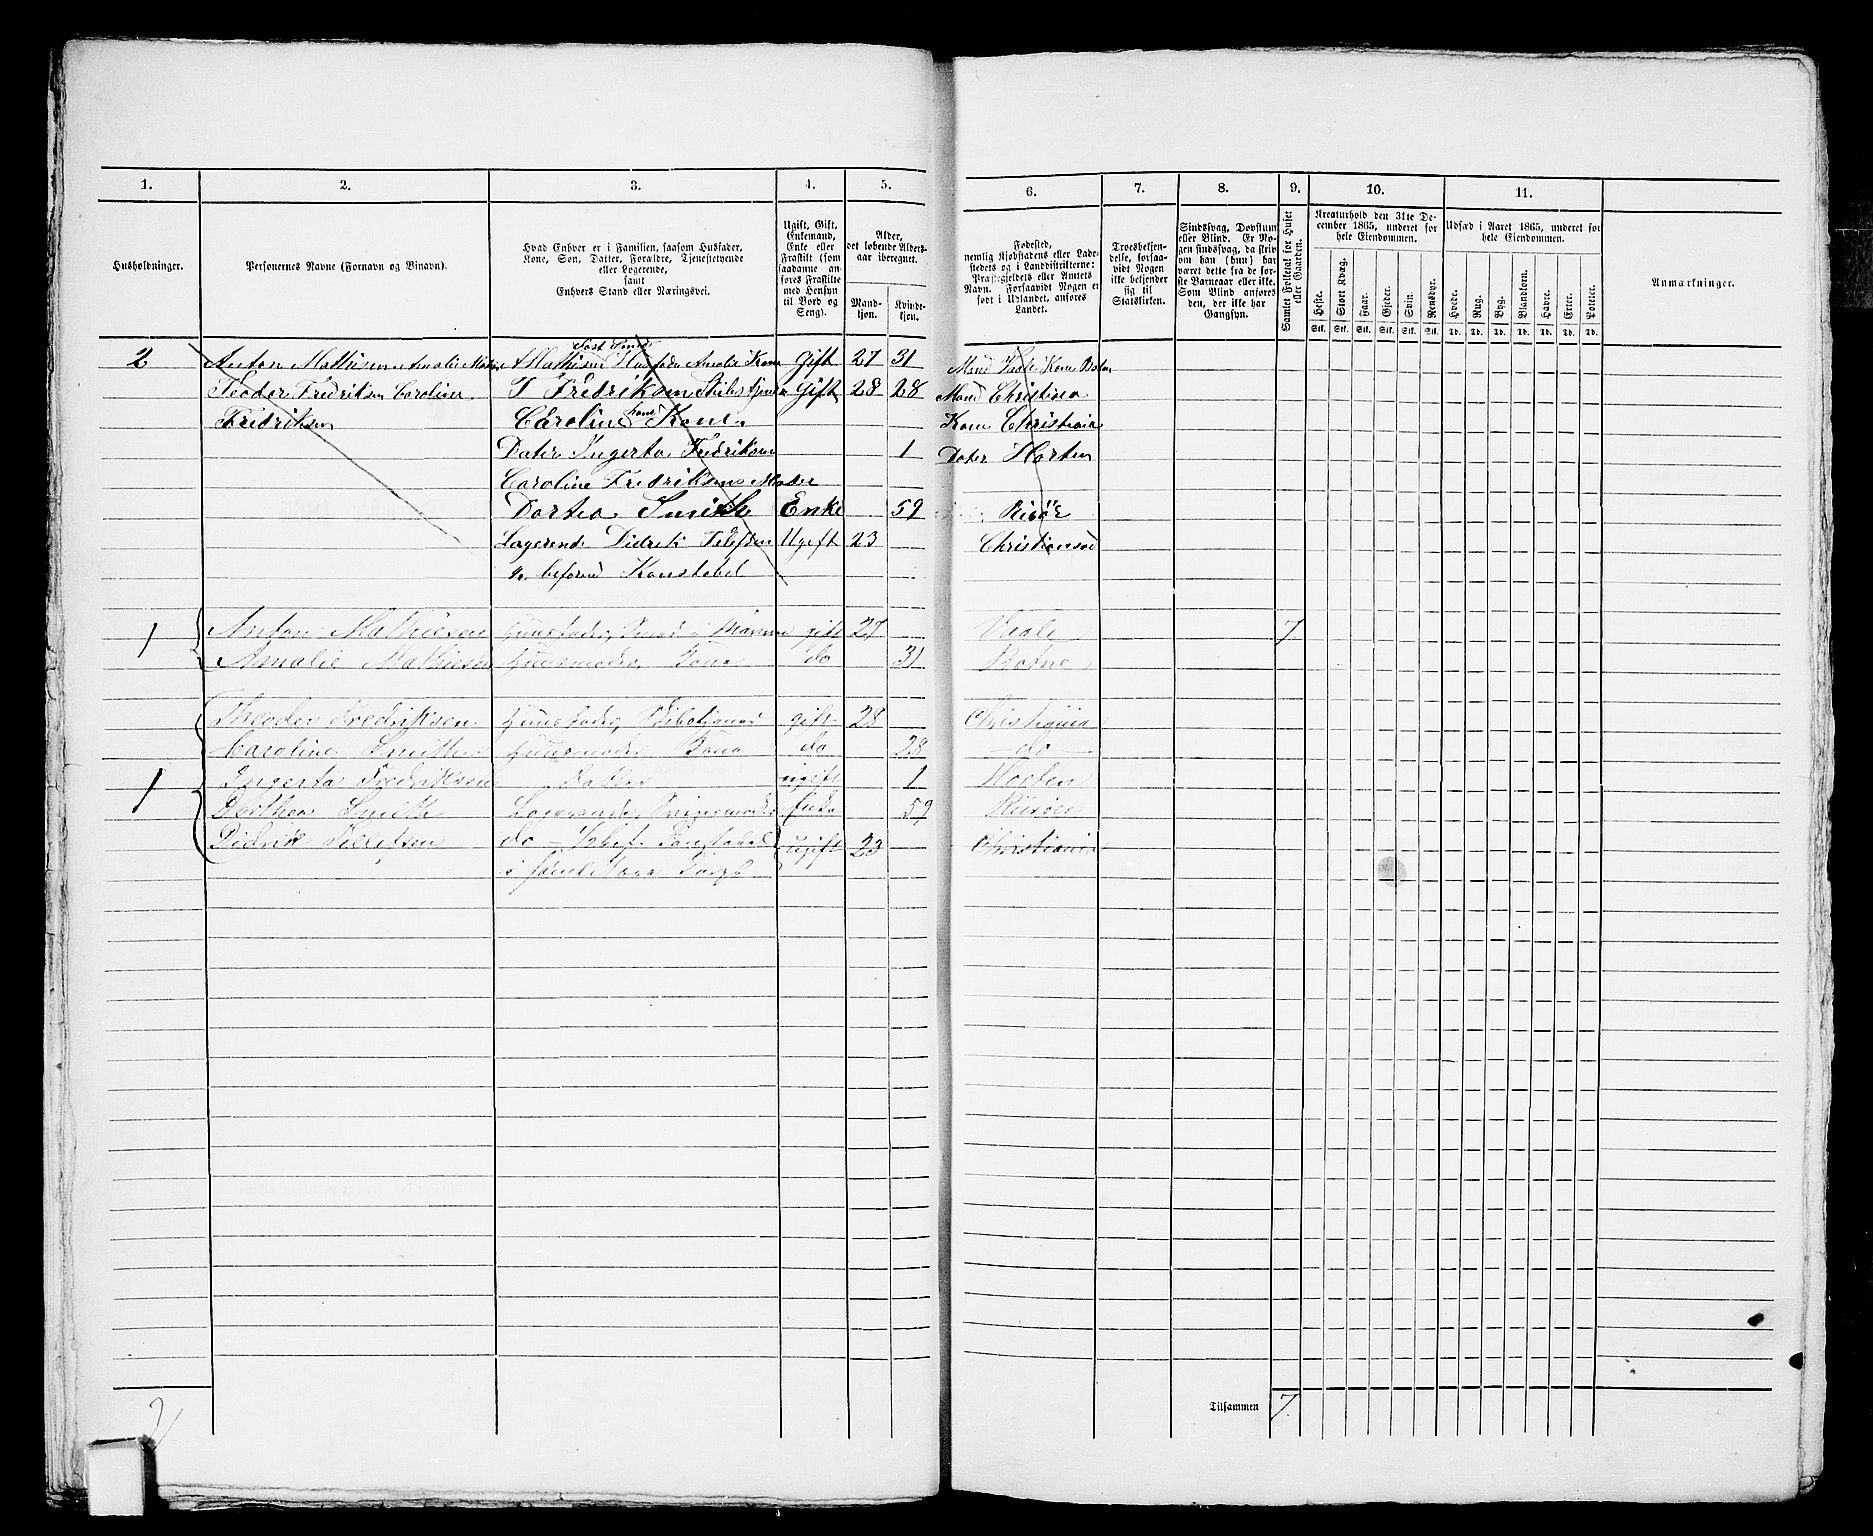 1. 2. 3. 4. 5. 6. 7. 8. 9. 10. 11.
Husholdninger.
Personernes Navne (Fornavn og Binavn).
Hvad Enhver er i Familien, saasom Husfader,
Kone, Søn, Datter, Forældre, Tjenestetyende
eller Logerende,
samt
Enhvers Stand eller Næringsvei.
Ugift, Gift,
Enkemand,
Enke eller
Fraskilt (som
saadanne an-
føres Fraskilte
med Hensyn
til Bord og
Seng).
Alder,
det løbende Alders-
aar iberegnet.
Mand-
kjøn.
Kvinde-
kjøn.
Fødested,
nemlig Kjøbstadens eller Lade-
stedets og i Landdistrikterne:
Præstegjeldets eller Amtets
Navn. Forsaavidt Nogen er
født i Udlandet, anføres
Landet.
Troesbekjen-
delse, forsaa-
vidt Nogen
ikke bekjender
sig til
Statskirken.
Sindssvag, Døvstum
eller Blind. Er No-
gen sindssvag, da skriv
om han (hun) har
været dette fra de før-
ste Barneaar eller ikke.
Som Blind anføres
den, der ikke har
Gangsyn.
Samlet Folketal for Huset
eller Gaarden.
Kreaturhold den 31te De-
cember 1865, underet for
hele Eiendommen.
Heste. Stort Kvæg. Faar. Gjeder. Svin. Rensdyr.
Stk. Stk. Stk. Stk. Stk. Stk.
Udsæd i Aaret 1865, underet for
hele Eiendommen.
Hvede. Rug. Byg. Blandkorn. Havre. Erter. Poteter.
Td. Td. Td. Td. Td. Td. Td.
Anmærkninger.
2 Anton Mathisen Amalie A Mathisen Amalie Kone Gift 27 31 Mand Kone
Teodor Fredriksen Caroline T Fredriksen Gift 28 28 Mand Christina
Fredriksen Caroline hans Kone Kone Christiania
Dater Ingerta Fredriksen 1 Dater Horten
Caroline Fredriksens Moder
Dortea Smith Enke 59 Risör
Logerende Didrik Ugift 23
Konstabel
1 Anton Mathiesen Huusfader, gift 27 7
Amalie Mathiesen Huusmoder, Kone do 31
Theodor Fredriksen Huusfader, gift 28 Christiania
Caroline Smith Huusmoder Kone do 28 do
1 Ingerta Fredriksen Datter ugift 1 Horten
Dorthea Smith Logerende, Enke 59 Risöer
Didrik do ugift 23 Christiania
2
Tilsammen 7